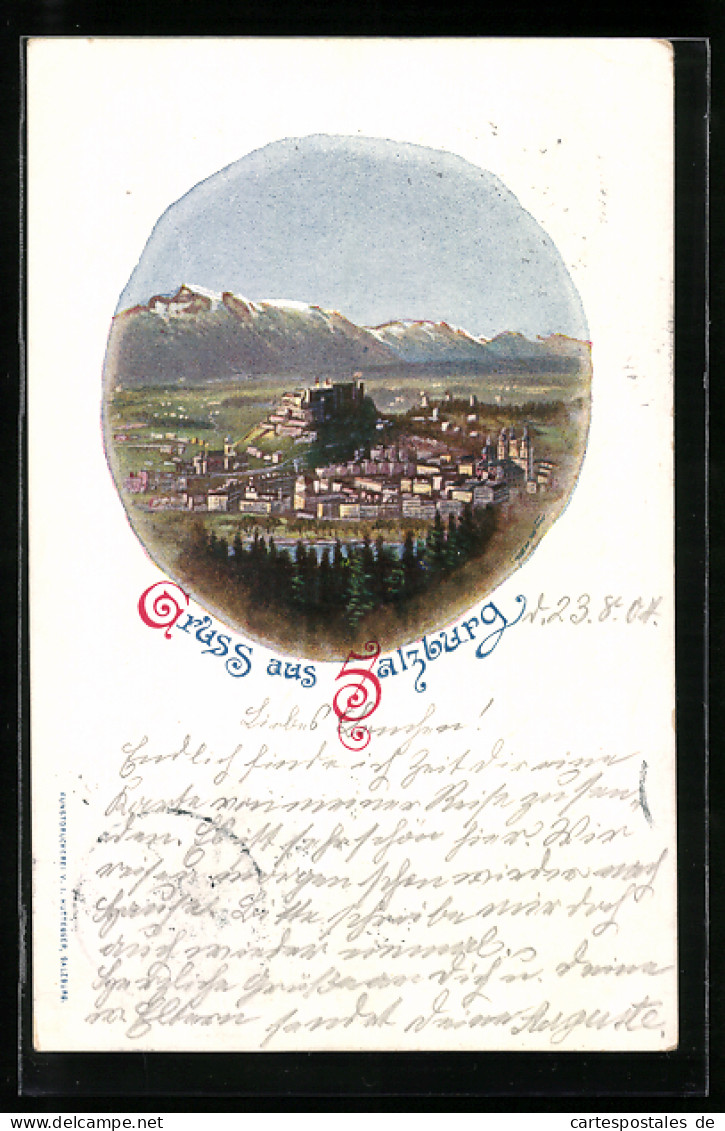 Gruss aus Salzburg
d. 23. 8. 04.
Liebes Ännchen!
Endlich finde ich Zeit dir eine
Karte von meiner Reise zu sen
den. Es ist sehr schön hier. Wir
reisen morgen schon wieder nach
Hause. Bitte schreibe mir doch
auch wieder einmal.
Herzliche Grüße an Dich u. deine
Eltern sendet deine Auguste.
KUNSTDRUCKEREI V. J. HUTTEGGER, SALZBURG.
www.delcampe.net
cartespostales de